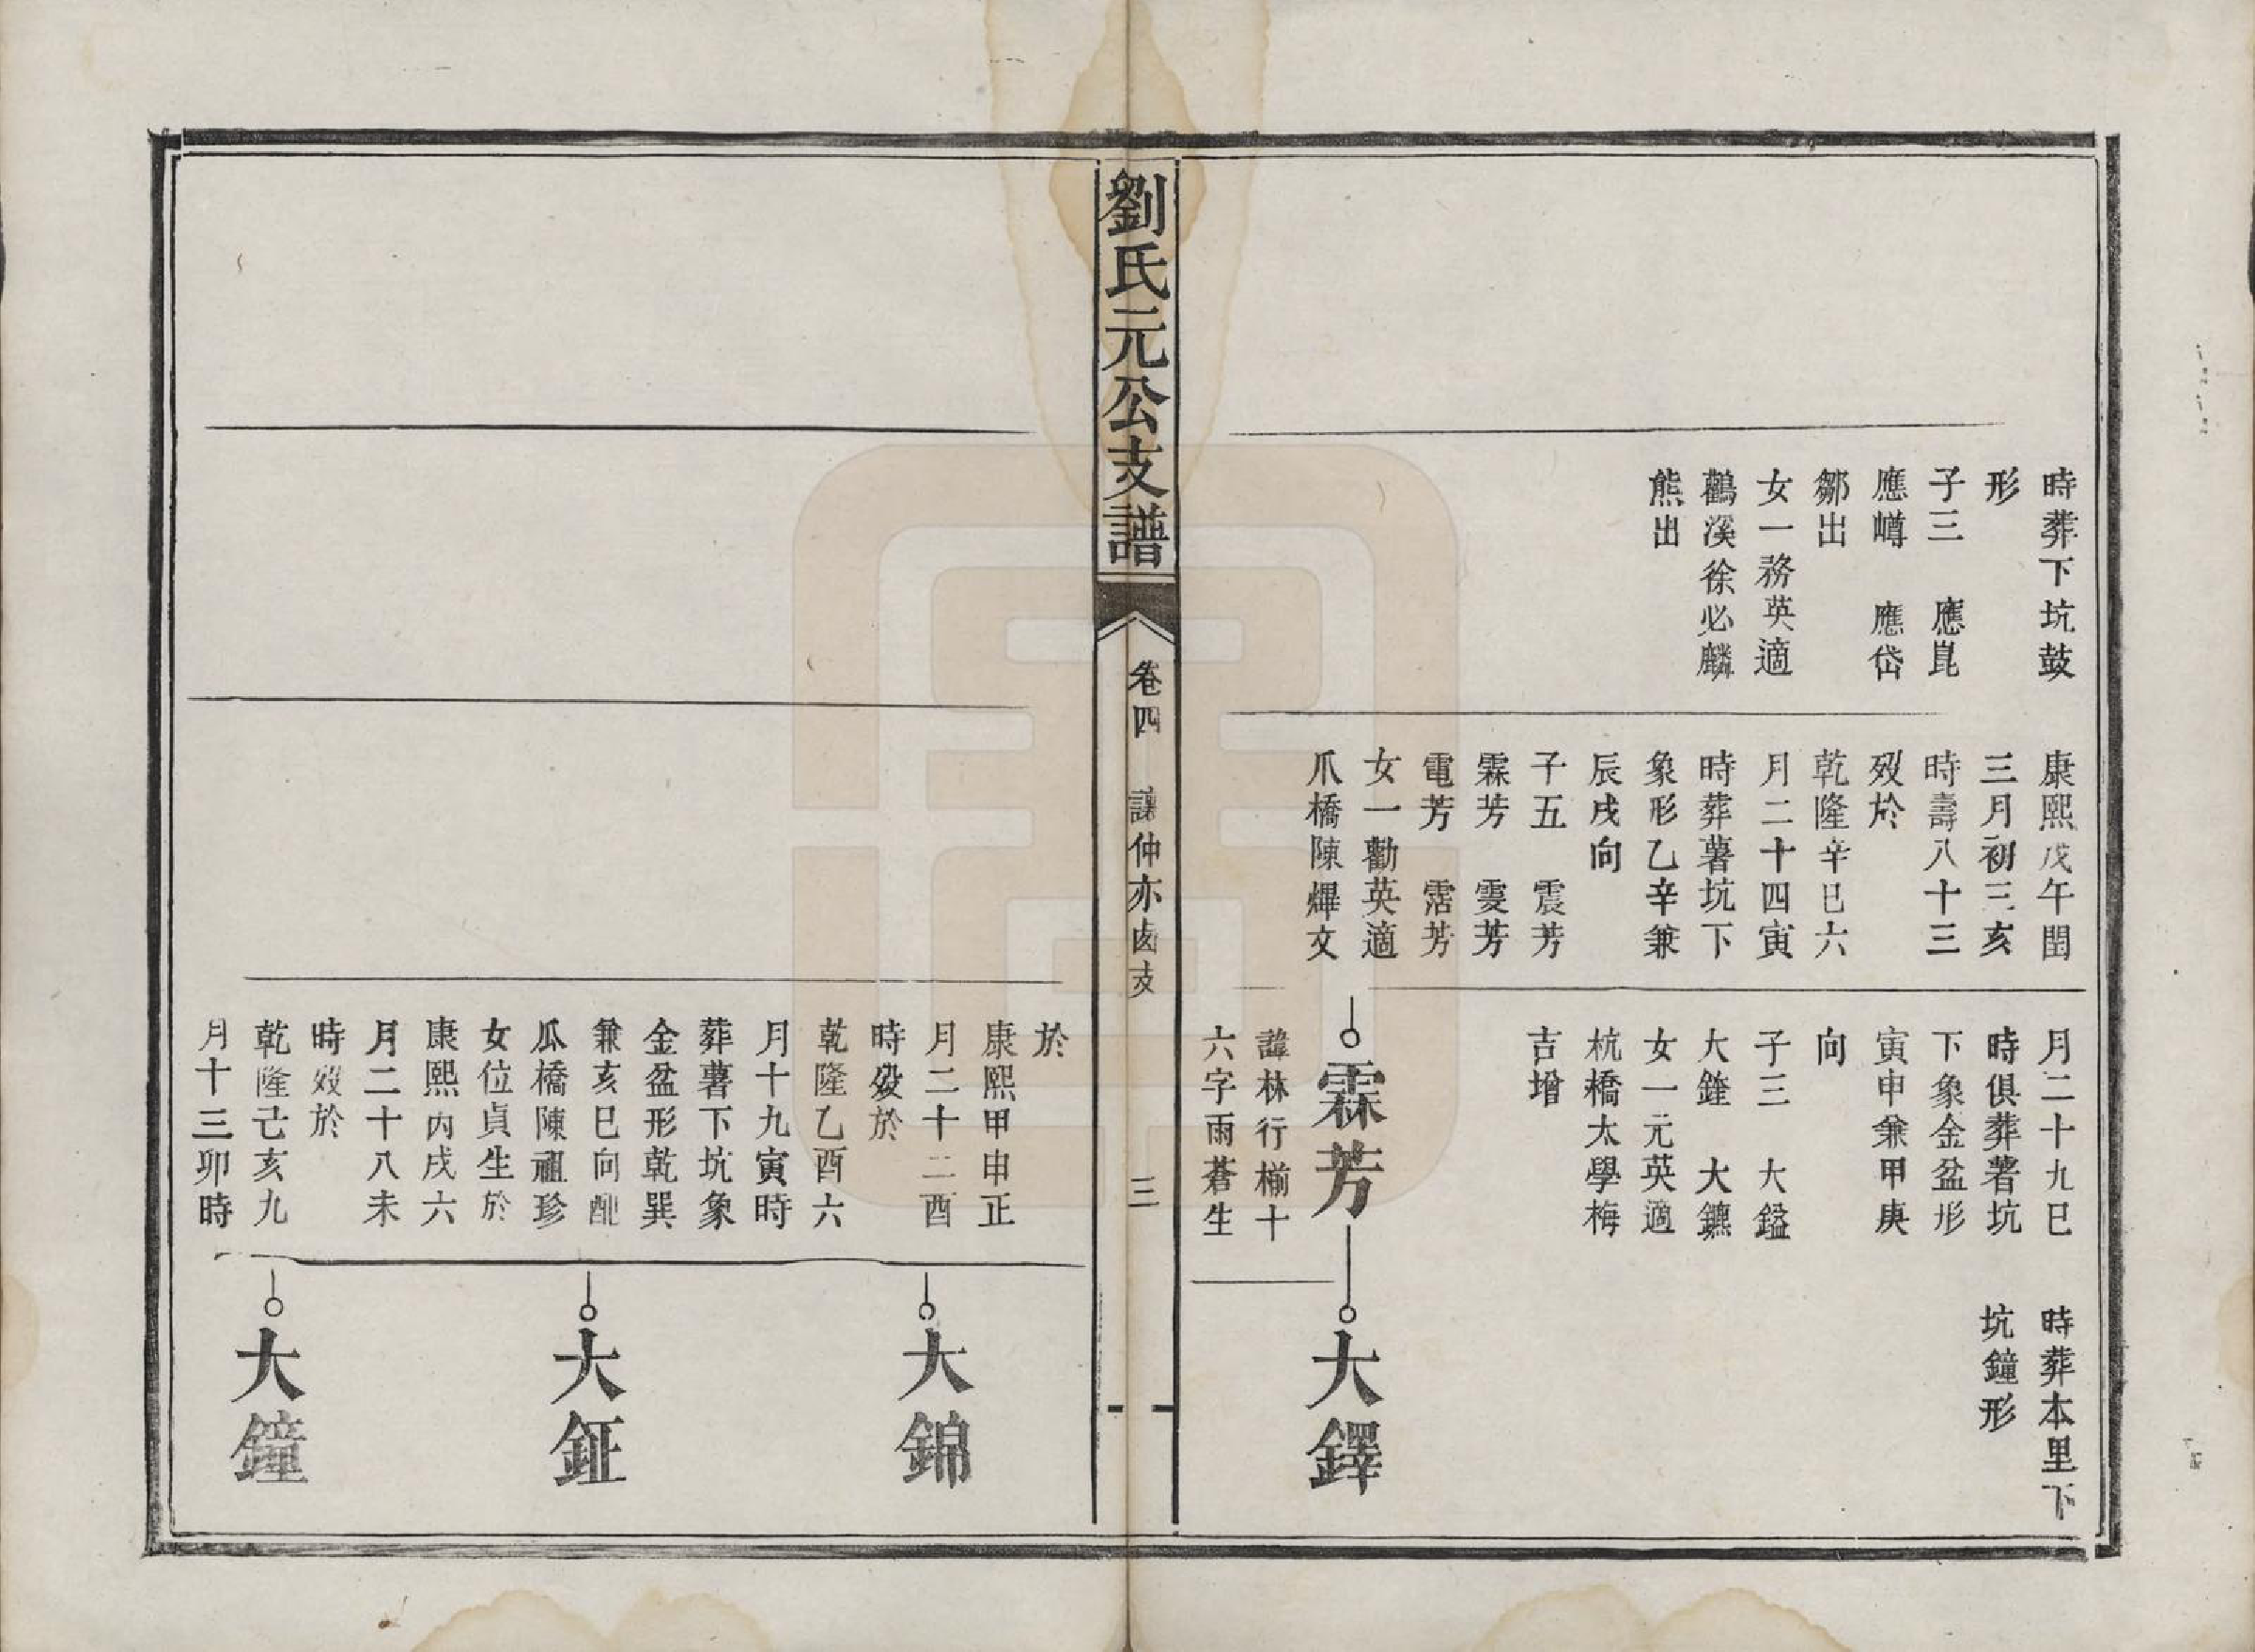 時葬下坑鼓
形
子三　應崑
應嶟　應岱
鄒出
女一務英適
鸛溪徐必麟
熊出
康熙戊午閏
三月初三亥
時壽八十三
歿於
乾隆辛巳六
月二十四寅
時葬薯坑下
象形乙辛兼
辰戌向
子五　震芳
霖芳　雯芳
電芳　霑芳
女一勸英適
爪橋陳燁文
月二十九巳
時俱葬薯坑
下象金盆形
寅申兼甲庚
向
子三　大鎰
大鏠　大鑣
女一元英適
杭橋太學梅
吉增
霖芳
諱林行櫤十
六字雨蒼生
時葬本里下
坑鐘形
大鐸
劉氏元公支譜
卷四　謀仲亦卣支　三
於
康熙甲申正
月二十二酉
時歿於
乾隆乙酉六
月十九寅時
葬薯下坑象
金盆形乾巽
兼亥巳向配
瓜橋陳祖珍
女位貞生於
康熙丙戌六
月二十八未
時歿於
乾隆己亥九
月十三卯時
大錦
大鉦
大鐘